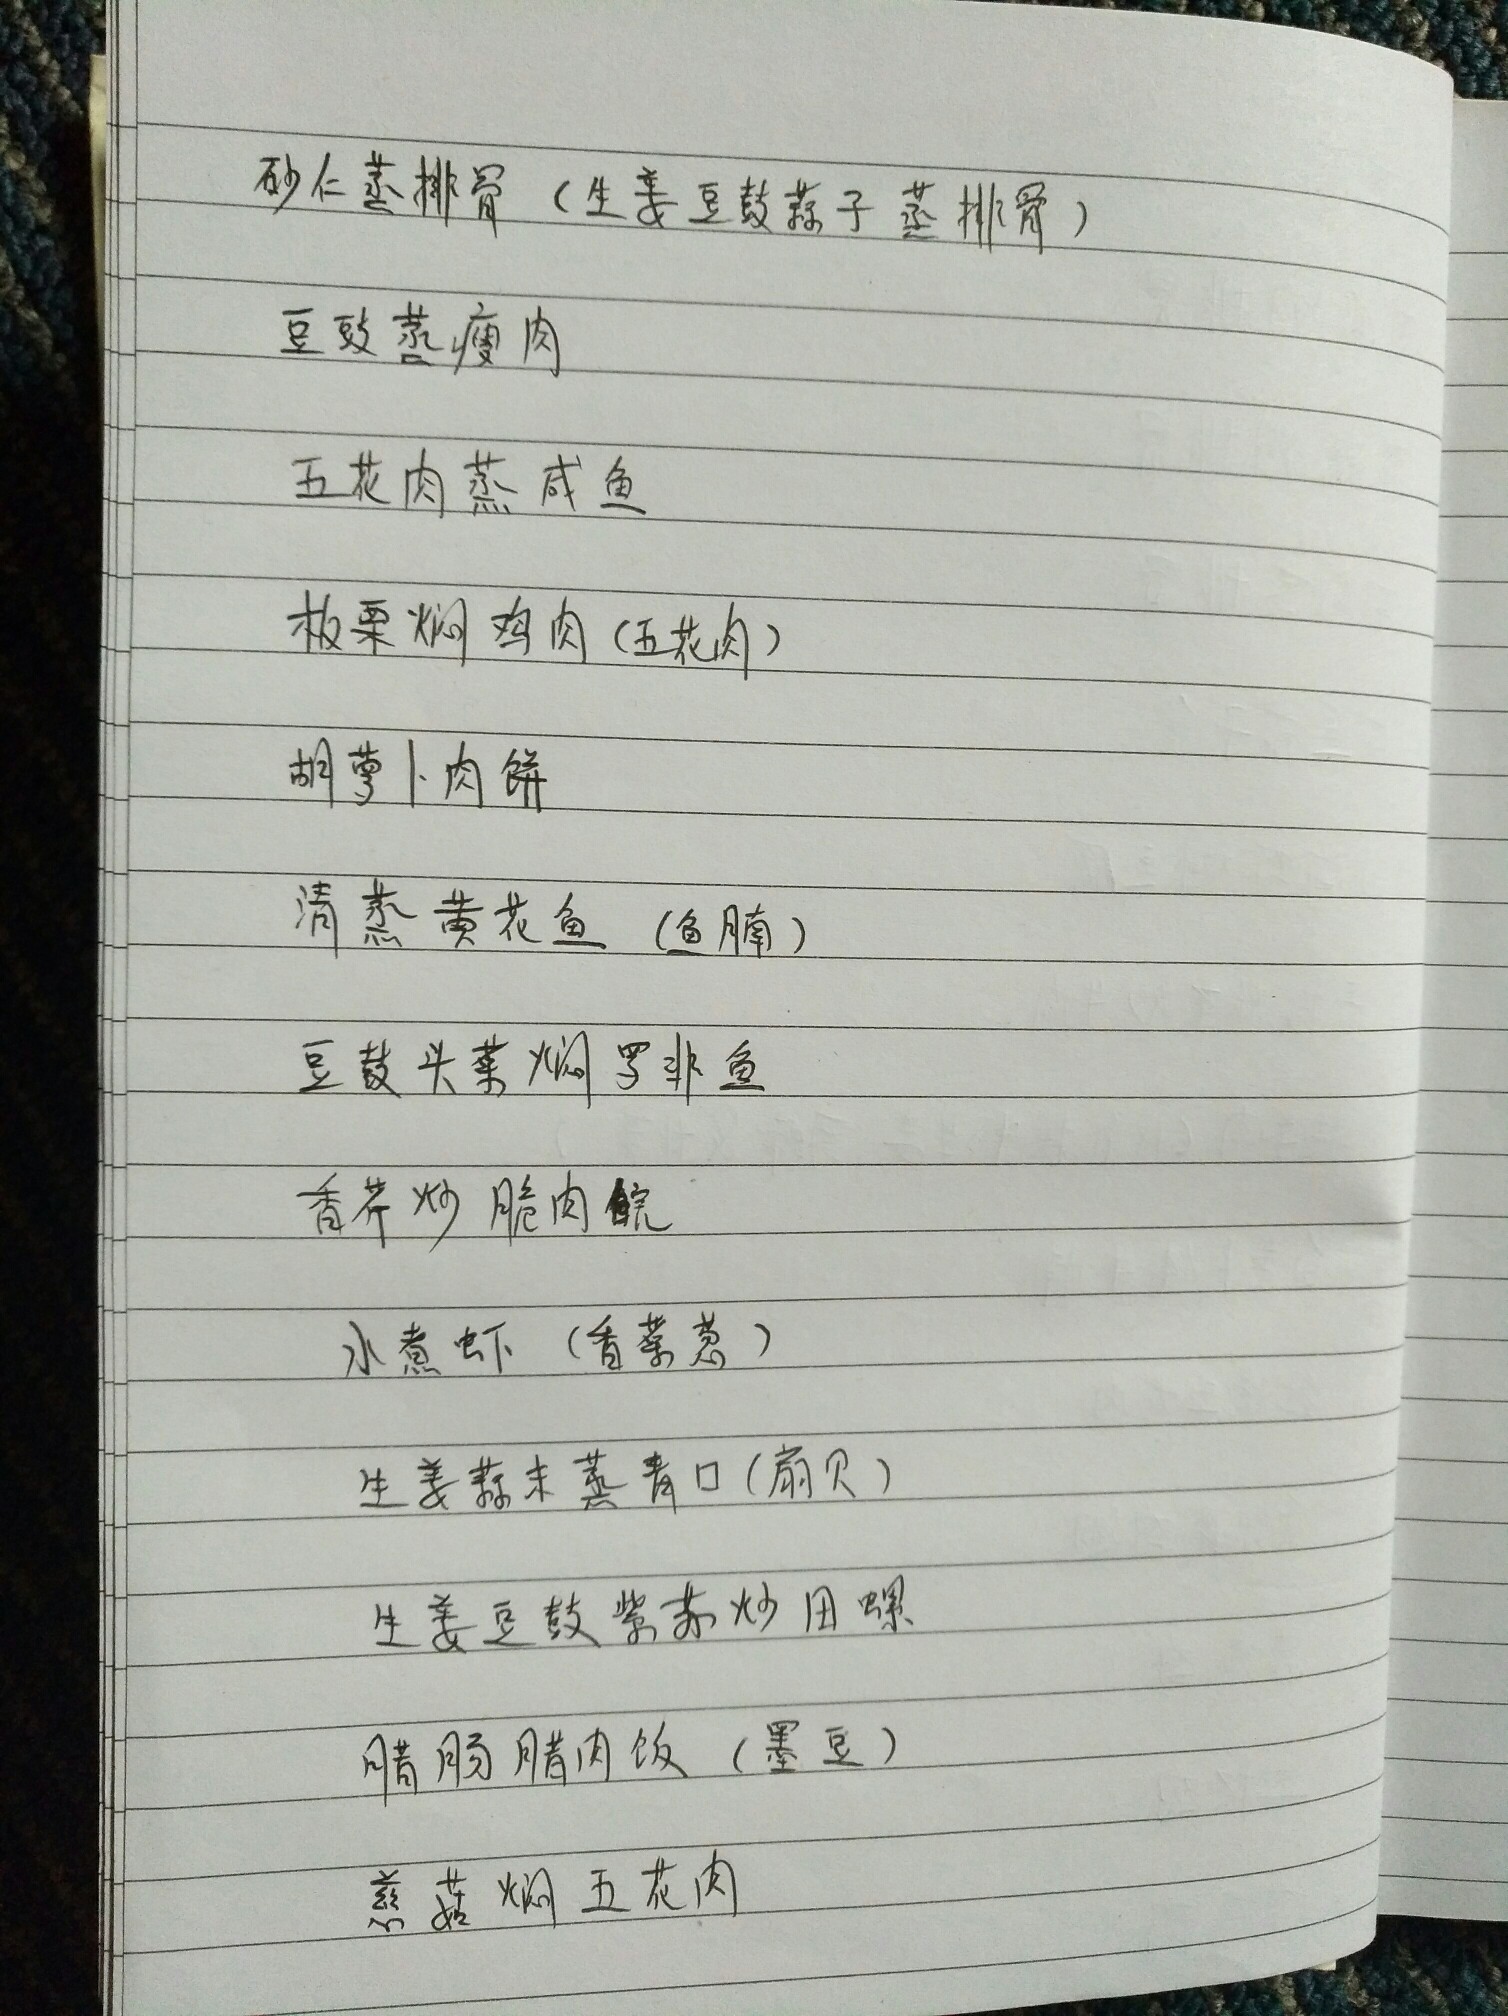 砂仁蒸排骨（生姜豆鼓蒜子蒸排骨）
豆豉蒸瘦肉
五花肉蒸咸鱼
板栗焖鸡肉（五花肉）
胡萝卜肉饼
清蒸黄花鱼（鱼腩）
豆鼓头菜焖罗非鱼
香芹炒脆肉鲩
水煮虾（香菜葱）
生姜蒜末蒸青口（扇贝）
生姜豆鼓紫苏炒田螺
腊肠腊肉饭（墨豆）
慈菇焖五花肉